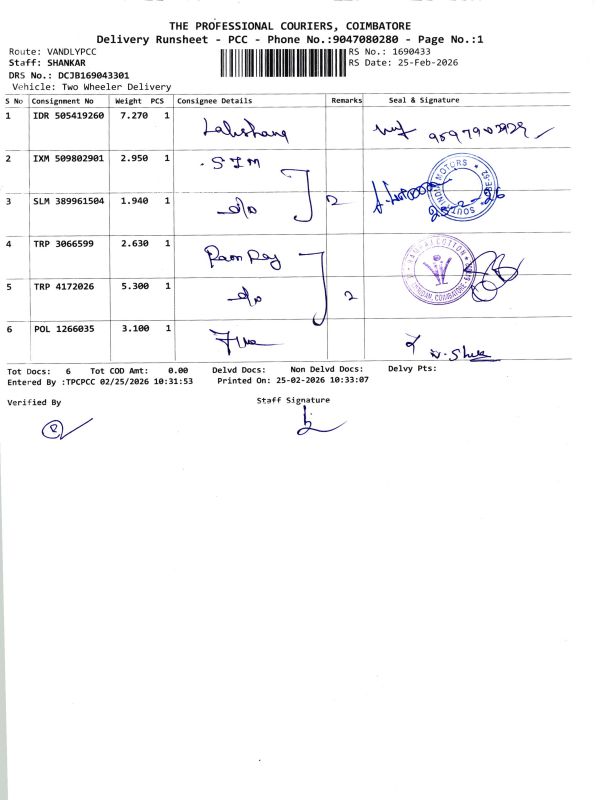 THE PROFESSIONAL COURIERS, COIMBATORE
Delivery Runsheet - PCC - Phone No.:9047080280 - Page No.:1
Route: VANDLYPCC RS No.: 1690433
Staff: SHANKAR RS Date: 25-Feb-2026
DRS No.: DCJB169043301
Vehicle: Two Wheeler Delivery
S No Consignment No Weight PCS Consignee Details Remarks Seal & Signature
1 IDR 505419260 7.270 1
2 IXM 509802901 2.950 1 SIM
3 SLM 389961504 1.940 1 d/o 2
4 TRP 3066599 2.630 1 Ram Raj
5 TRP 4172026 5.300 1 d/o 2
6 POL 1266035 3.100 1
Tot Docs: 6 Tot COD Amt: 0.00 Delvd Docs: Non Delvd Docs: Delvy Pts:
Entered By :TPCPCC 02/25/2026 10:31:53 Printed On: 25-02-2026 10:33:07
Verified By Staff Signature